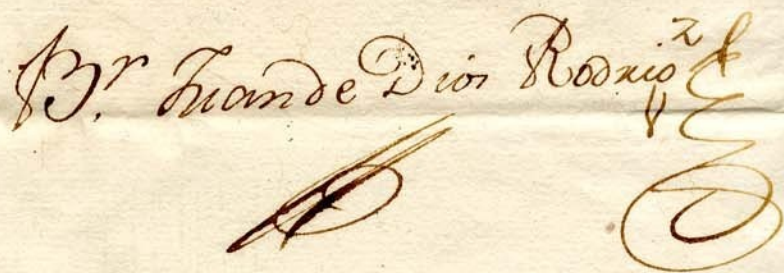 Br. Juan de Dios Rodrigz